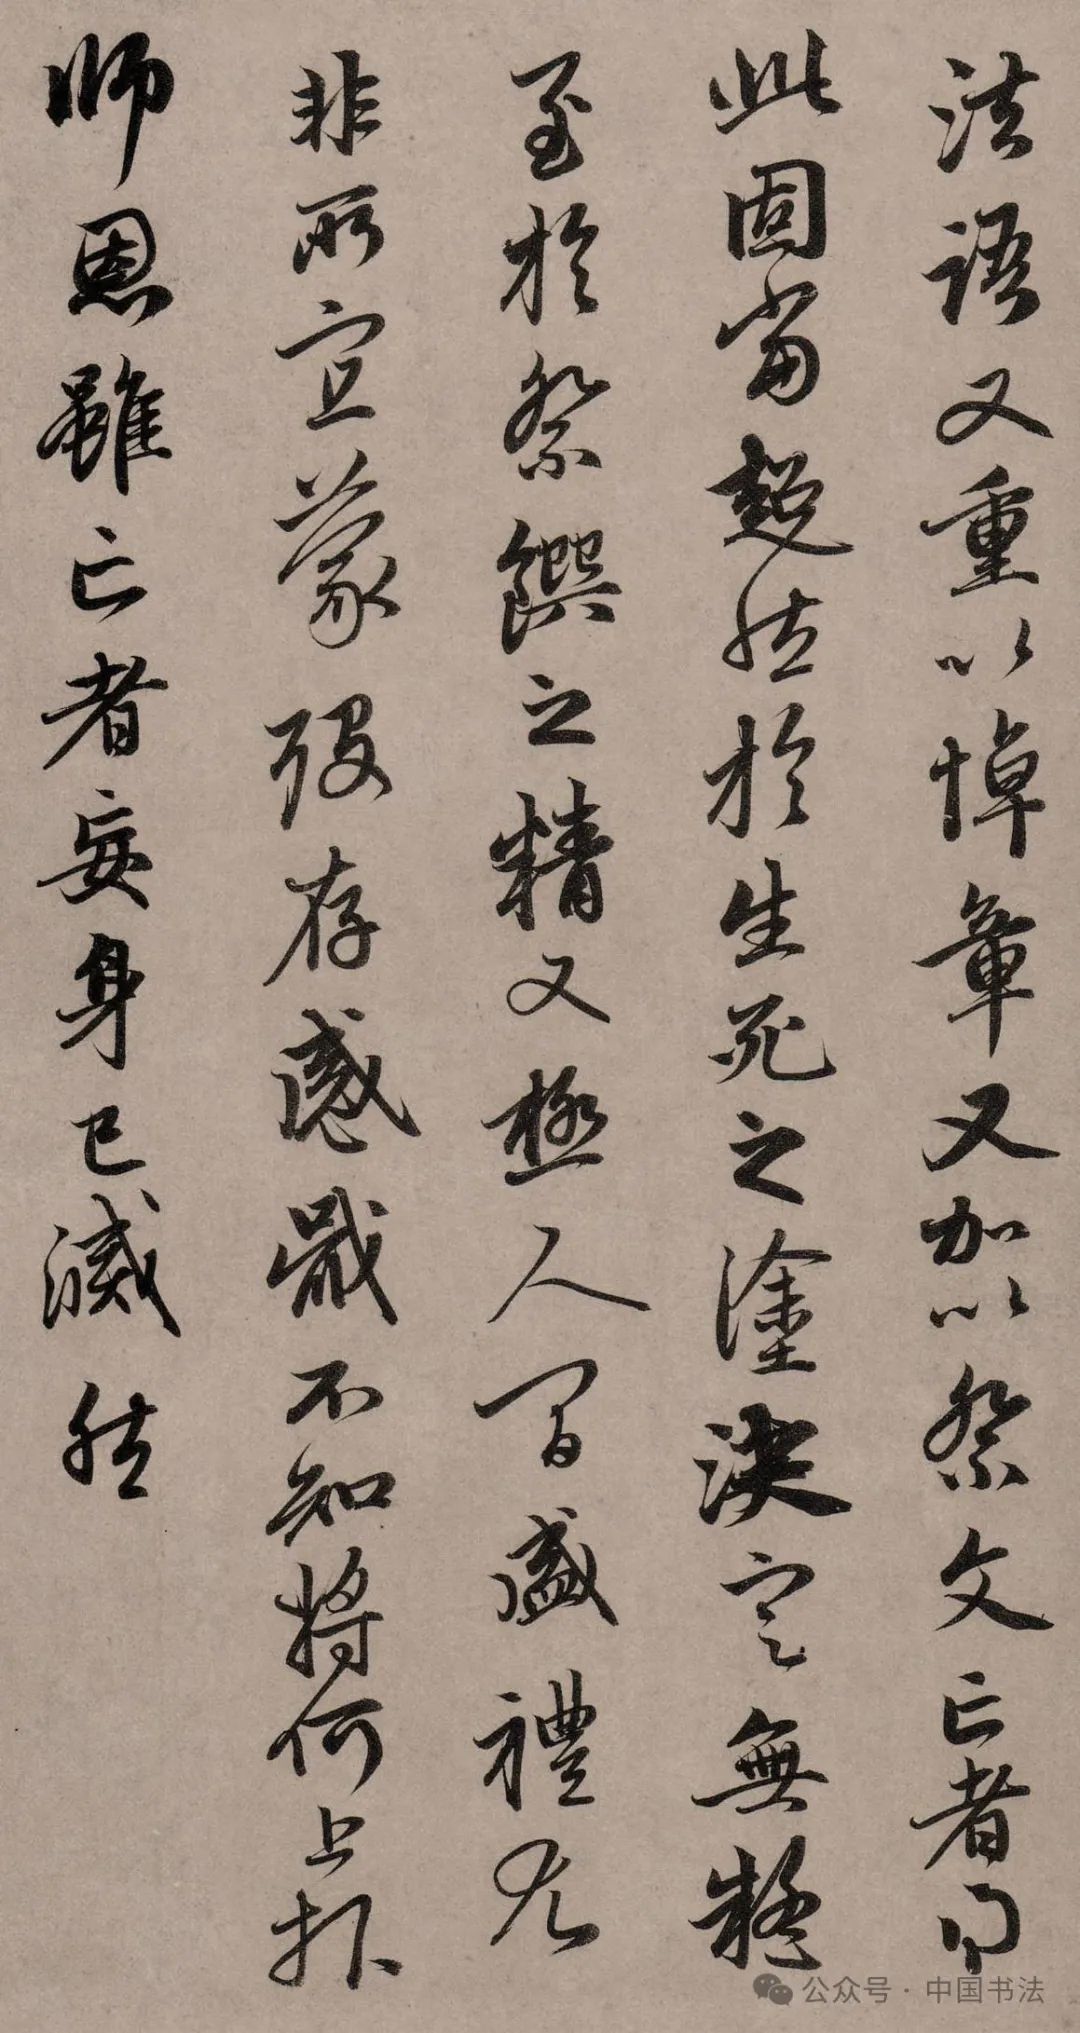 法語又重以悼章又加以祭文亡者聞
此固當超然於生死之塗決定無疑
至於祭饌之精又極人間盛禮尤
非所宜蒙歿存感戴不知將何上報
師恩雖亡者妄身已滅然
公众号·中国书法